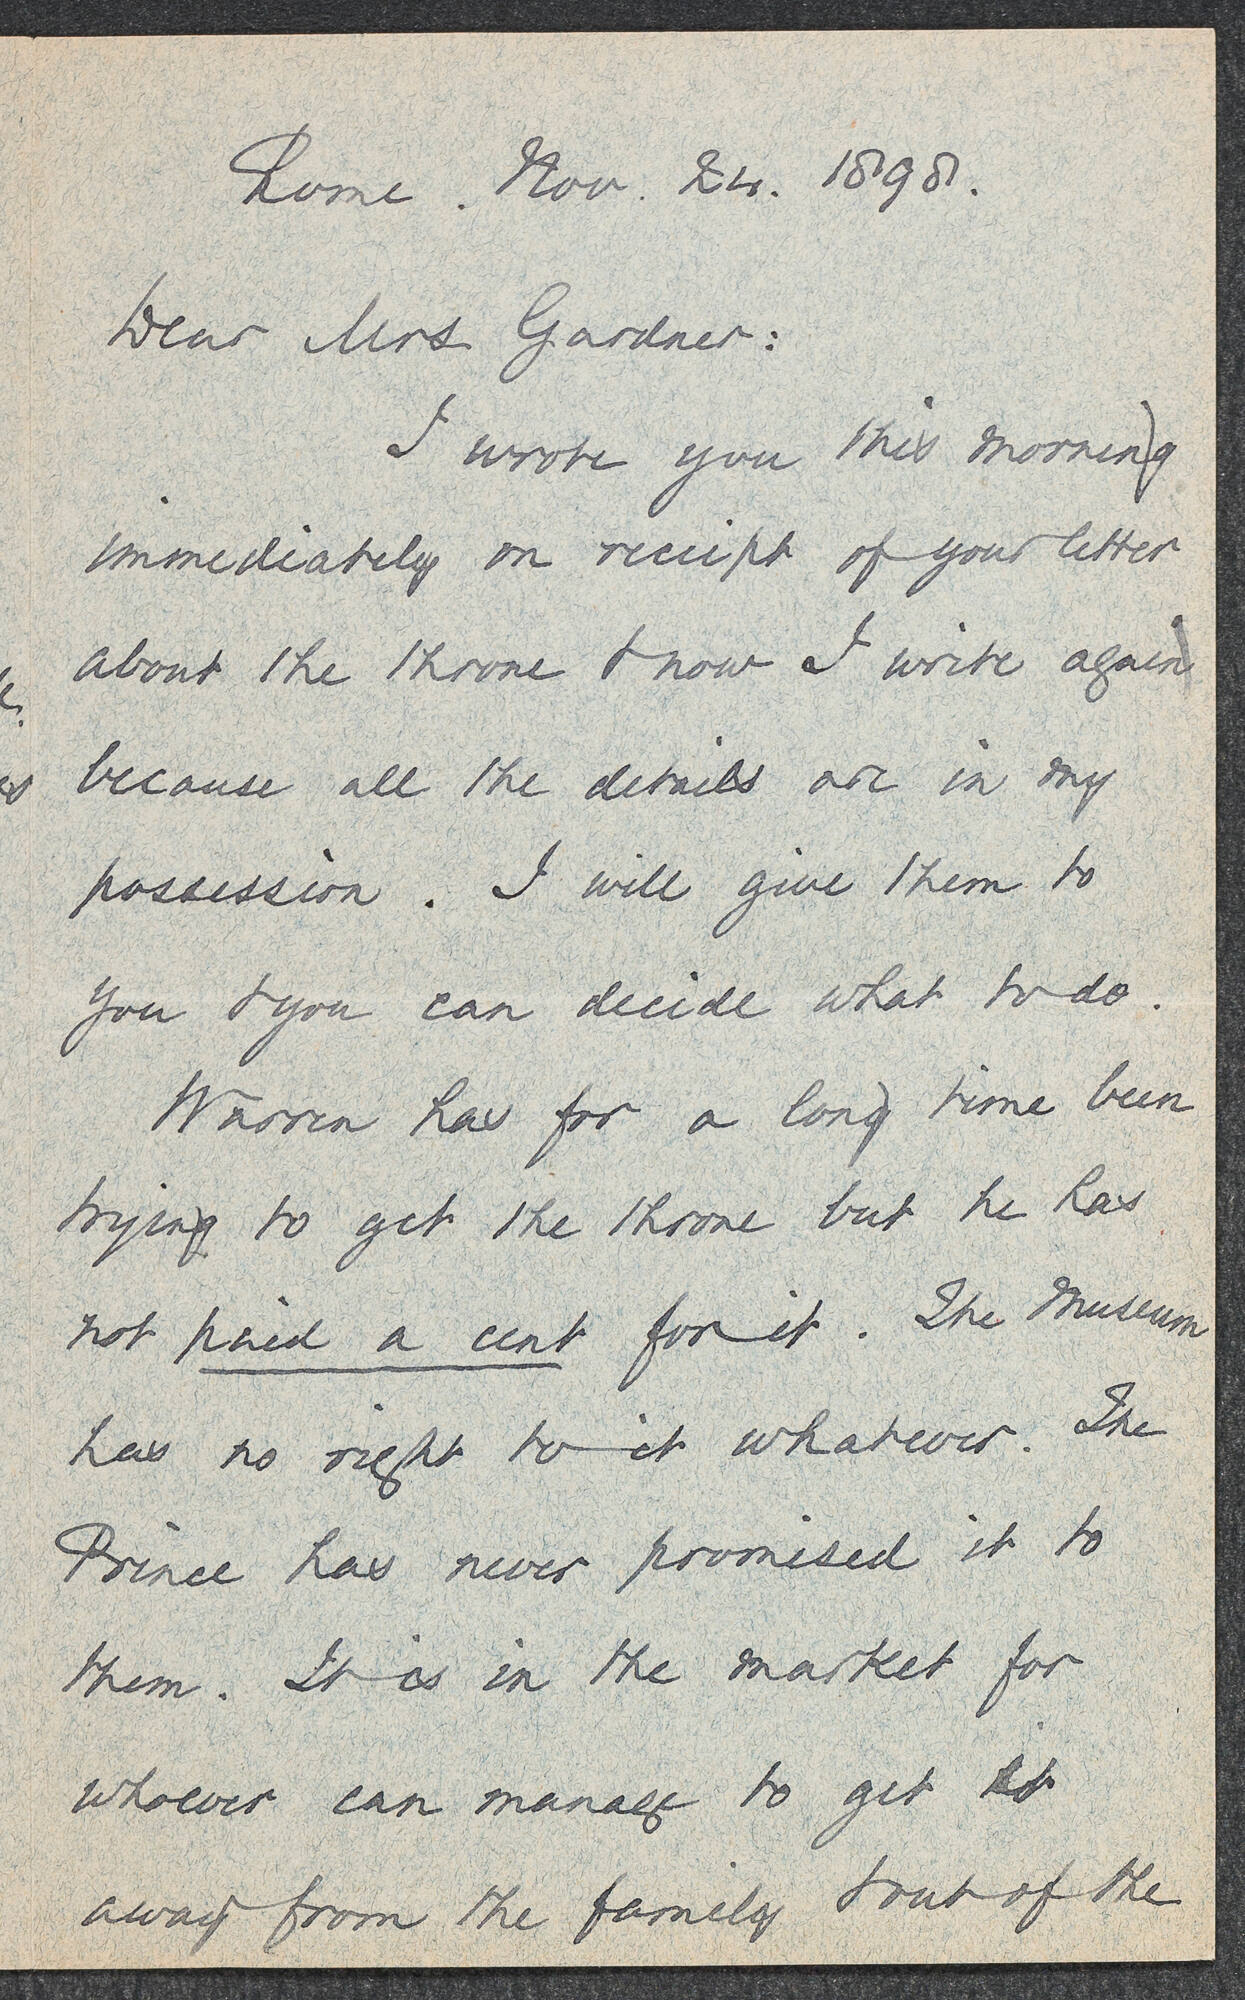 Rome. Nov. 24. 1898.
Dear Mrs Gardner:
I wrote you this morning
immediately on receipt of your letter
about the throne & now I write again
because all the details are in my
possession. I will give them to
you & you can decide what to do.
Warren has for a long time been
trying to get the throne but he has
not paid a cent for it. The Museum
has no right to it whatever. The
Prince has never promised it to
them. It is in the market for
whoever can manage to get it
away from the family & out of the